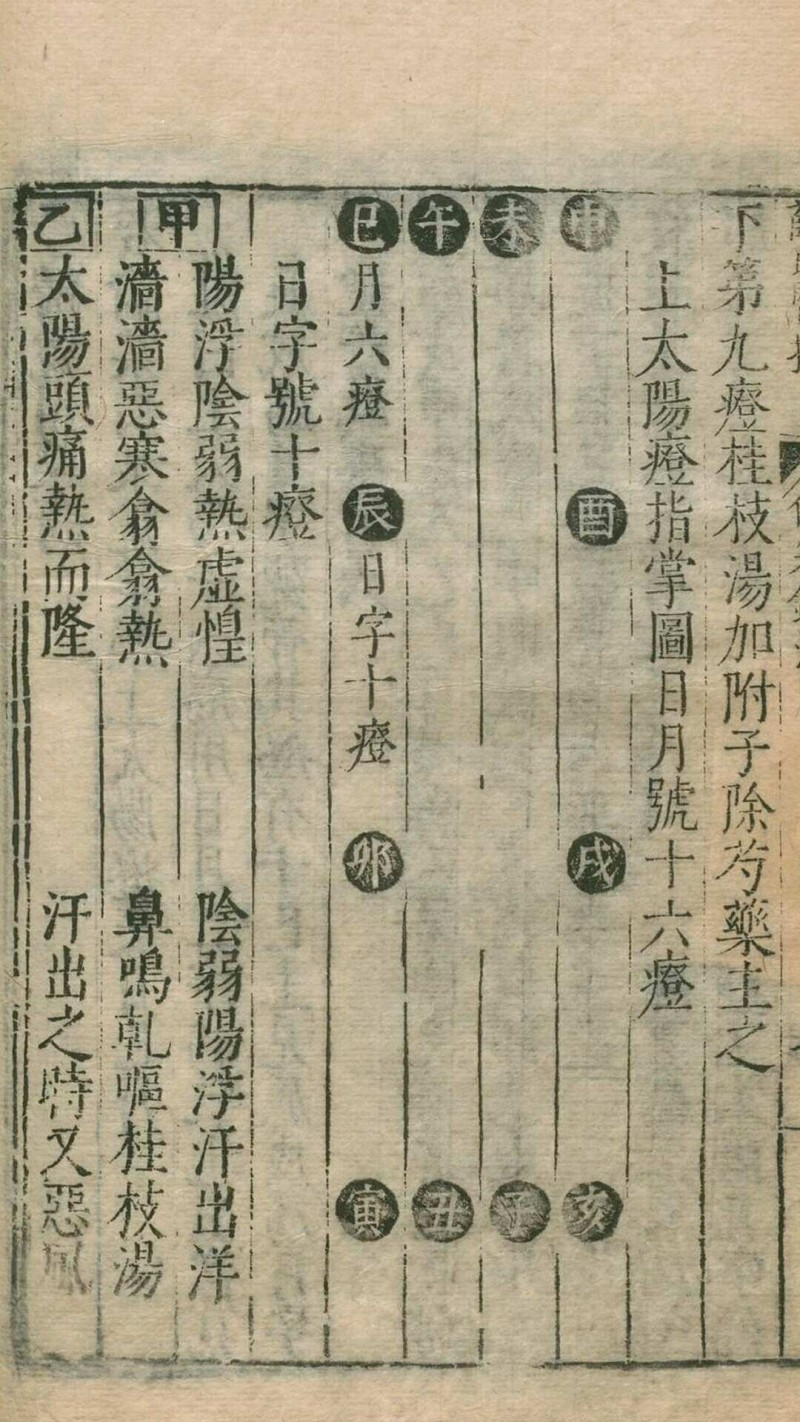 下第九證桂枝湯加附子除芍藥主之
上太陽證指掌圖日月號十六證
申 酉 戌 亥
未 子
午 丑
巳 月六證 辰 日字十證 卯 寅
日字號十證
甲 陽浮陰弱熱虛惶 陰弱陽浮汗出洋
濇濇惡寒翕翕熱 鼻鳴乾嘔桂枝湯
乙 太陽頭痛熱而隆 汗出之時又惡風